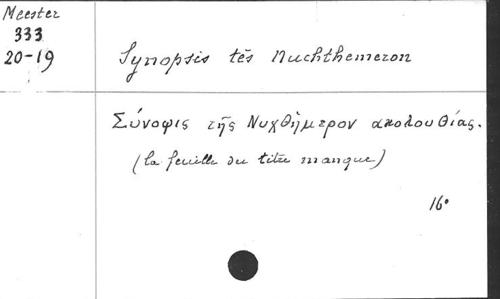 Meester
333
20-19
Synopsis tēs Nuchthemeron
Σύνοψις τῆς Νυχθήμερον ακολουθίας.
(la feuille du titre manque)
16°